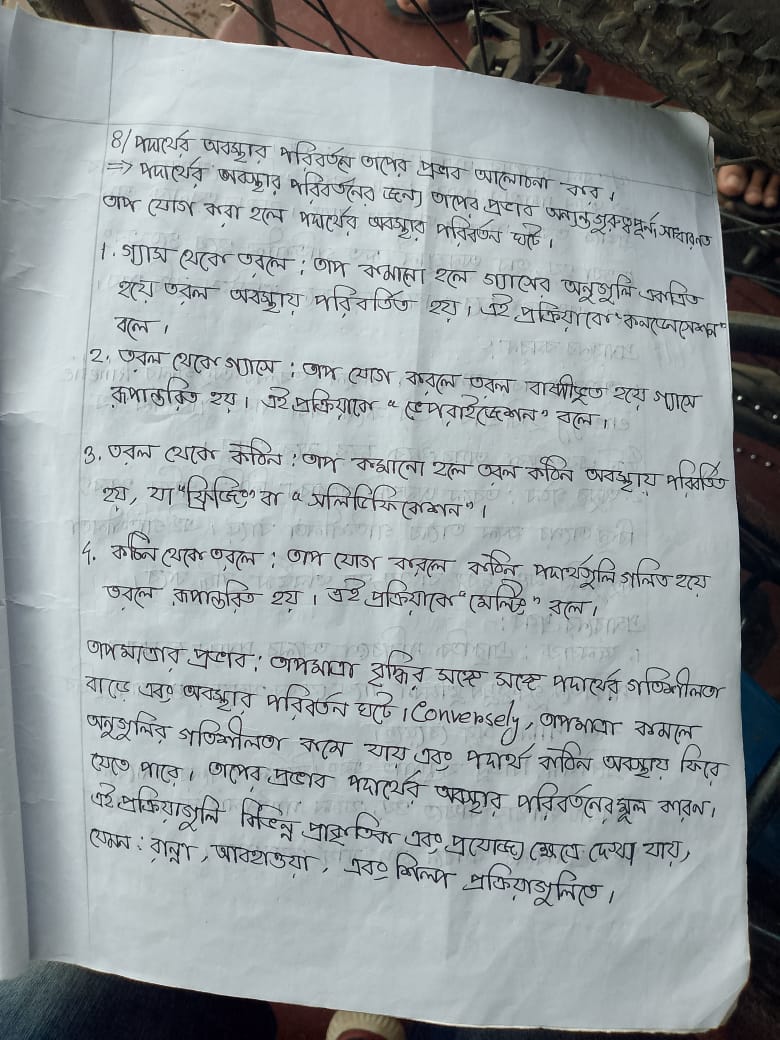 ৪/ পদার্থের অবস্থার পরিবর্তনে তাপের প্রভাব আলোচনা কর।
=> পদার্থের অবস্থার পরিবর্তনের জন্য তাপের প্রভাব অত্যন্ত গুরুত্বপূর্ণ। সাধারণত
তাপ যোগ করা হলে পদার্থের অবস্থার পরিবর্তন ঘটে।
1. গ্যাস থেকে তরলে : তাপ কমানো হলে গ্যাসের অনুগুলি একত্রিত
হয়ে তরল অবস্থায় পরিবর্তিত হয়। এই প্রক্রিয়াকে "কনডেনসেশন"
বলে।
2. তরল থেকে গ্যাসে : তাপ যোগ করলে তরল বাষ্পীভূত হয়ে গ্যাসে
রূপান্তরিত হয়। এই প্রক্রিয়াকে "ভেপরাইজেশন" বলে।
3. তরল থেকে কঠিন : তাপ কমানো হলে তরল কঠিন অবস্থায় পরিবর্তিত
হয়, যা "ফ্রিজিং" বা "সলিডিফিকেশন"।
4. কঠিন থেকে তরলে : তাপ যোগ করলে কঠিন পদার্থগুলি গলিত হয়ে
তরলে রূপান্তরিত হয়। এই প্রক্রিয়াকে "মেল্টিং" বলে।
তাপমাত্রার প্রভাব : তাপমাত্রা বৃদ্ধির সঙ্গে সঙ্গে পদার্থের গতিশীলতা
বাড়ে এবং অবস্থার পরিবর্তন ঘটে। Conversely, তাপমাত্রা কমলে
অনুগুলির গতিশীলতা কমে যায় এবং পদার্থ কঠিন অবস্থায় ফিরে
যেতে পারে। তাপের প্রভাব পদার্থের অবস্থার পরিবর্তনের মূল কারন।
এই প্রক্রিয়াগুলি বিভিন্ন প্রাকৃতিক এবং প্রযোজ্য ক্ষেত্রে দেখা যায়,
যেমন : রান্না, আবহাওয়া, এবং শিল্প প্রক্রিয়াগুলিতে।